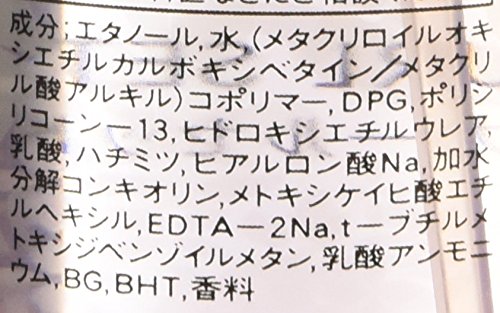 成分；エタノール，水，（メタクリロイルオキ
シエチルカルボキシベタイン／メタクリ
ル酸アルキル）コポリマー，DPG，ポリシ
リコーン－13，ヒドロキシエチルウレア，
乳酸，ハチミツ，ヒアルロン酸Na，加水
分解コンキオリン，メトキシケイヒ酸エチ
ルヘキシル，EDTA－2Na，t－ブチルメ
トキシジベンゾイルメタン，乳酸アンモニ
ウム，BG，BHT，香料